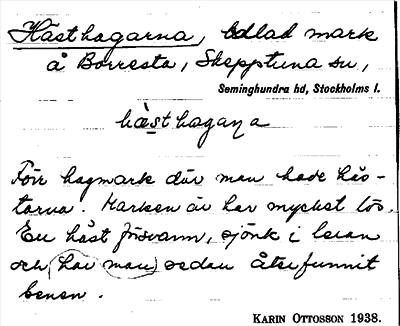 Hästhagarna, odlad mark
å Borresta, Skepptuna sn,
Seminghundra hd, Stockholms l.
hæsthagaɳa
Förr hagmark där man hade häs-
tarna. Marken är här mycket lös.
En häst försvann, sjönk i leran
och (har man) sedan återfunnit
benen.
KARIN OTTOSSON 1938.